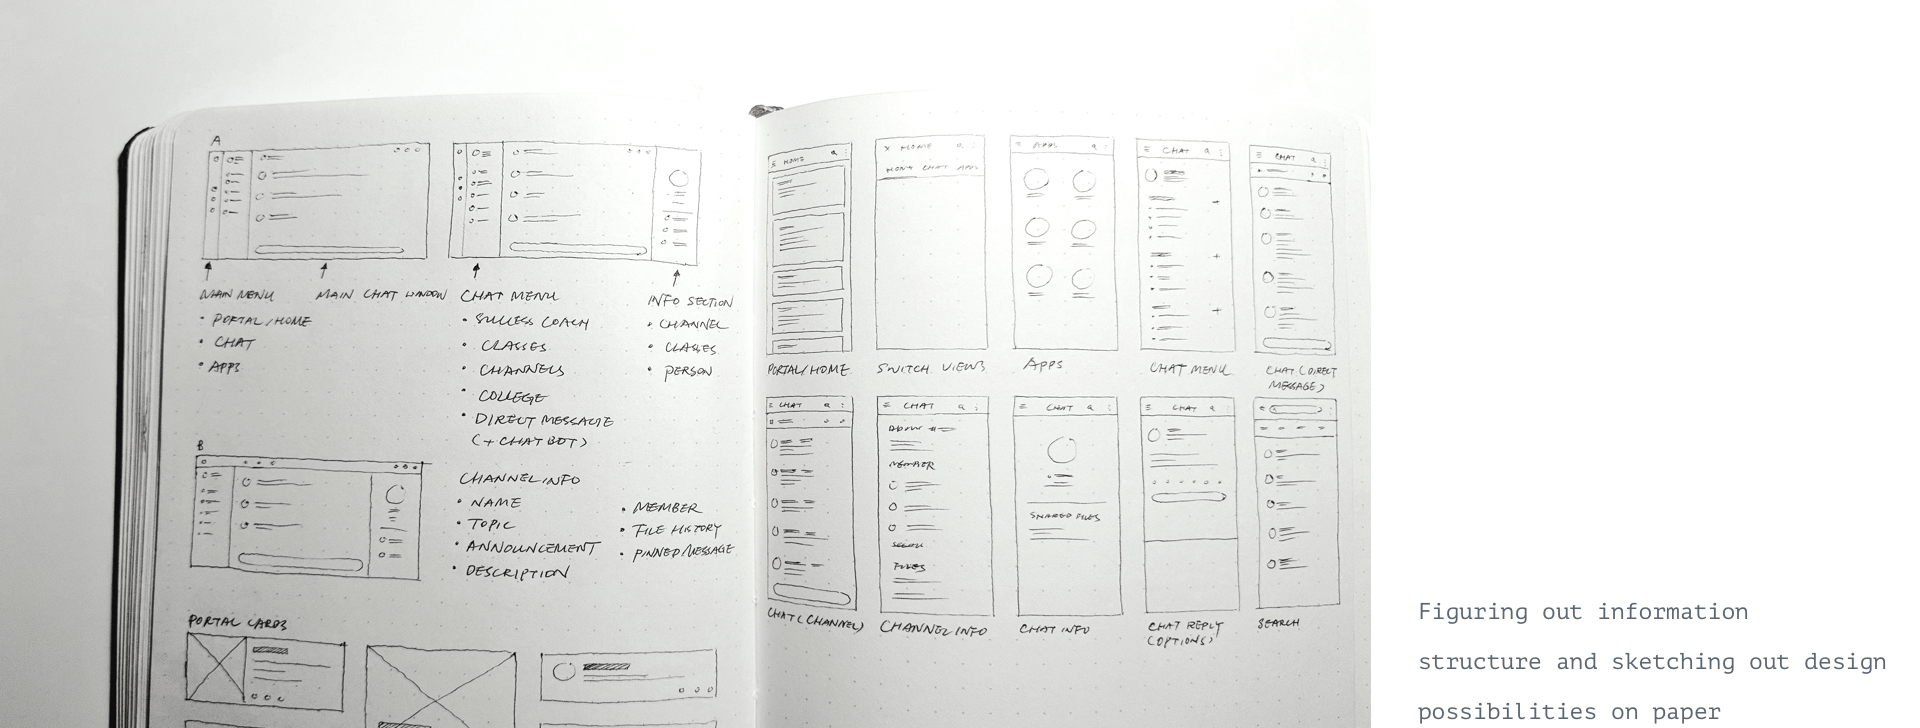 A
MAIN MENU
• PORTAL/HOME
• CHAT
• APPS
MAIN CHAT WINDOW
CHAT MENU
• SUCCESS COACH
• CLASSES
• CHANNELS
• COLLEGE
• DIRECT MESSAGE
(+ CHAT BOT)
INFO SECTION
• CHANNEL
• CLASSES
• PERSON
B
CHANNEL INFO
• NAME
• TOPIC
• ANNOUNCEMENT
• DESCRIPTION
• MEMBER
• FILE HISTORY
• PINNED MESSAGE
PORTAL CARDS
HOME
HOME
HOME CHAT APPS
APPS
CHAT
CHAT
PORTAL/HOME
SWITCH VIEWS
APPS
CHAT MENU
CHAT (DIRECT
MESSAGE)
CHAT
CHAT
ABOUT #
MEMBER
FILES
CHAT
SHARED FILES
CHAT
CHAT (CHANNEL)
CHANNEL INFO
CHAT INFO
CHAT REPLY
(OPTIONS)
SEARCH
Figuring out information
structure and sketching out design
possibilities on paper